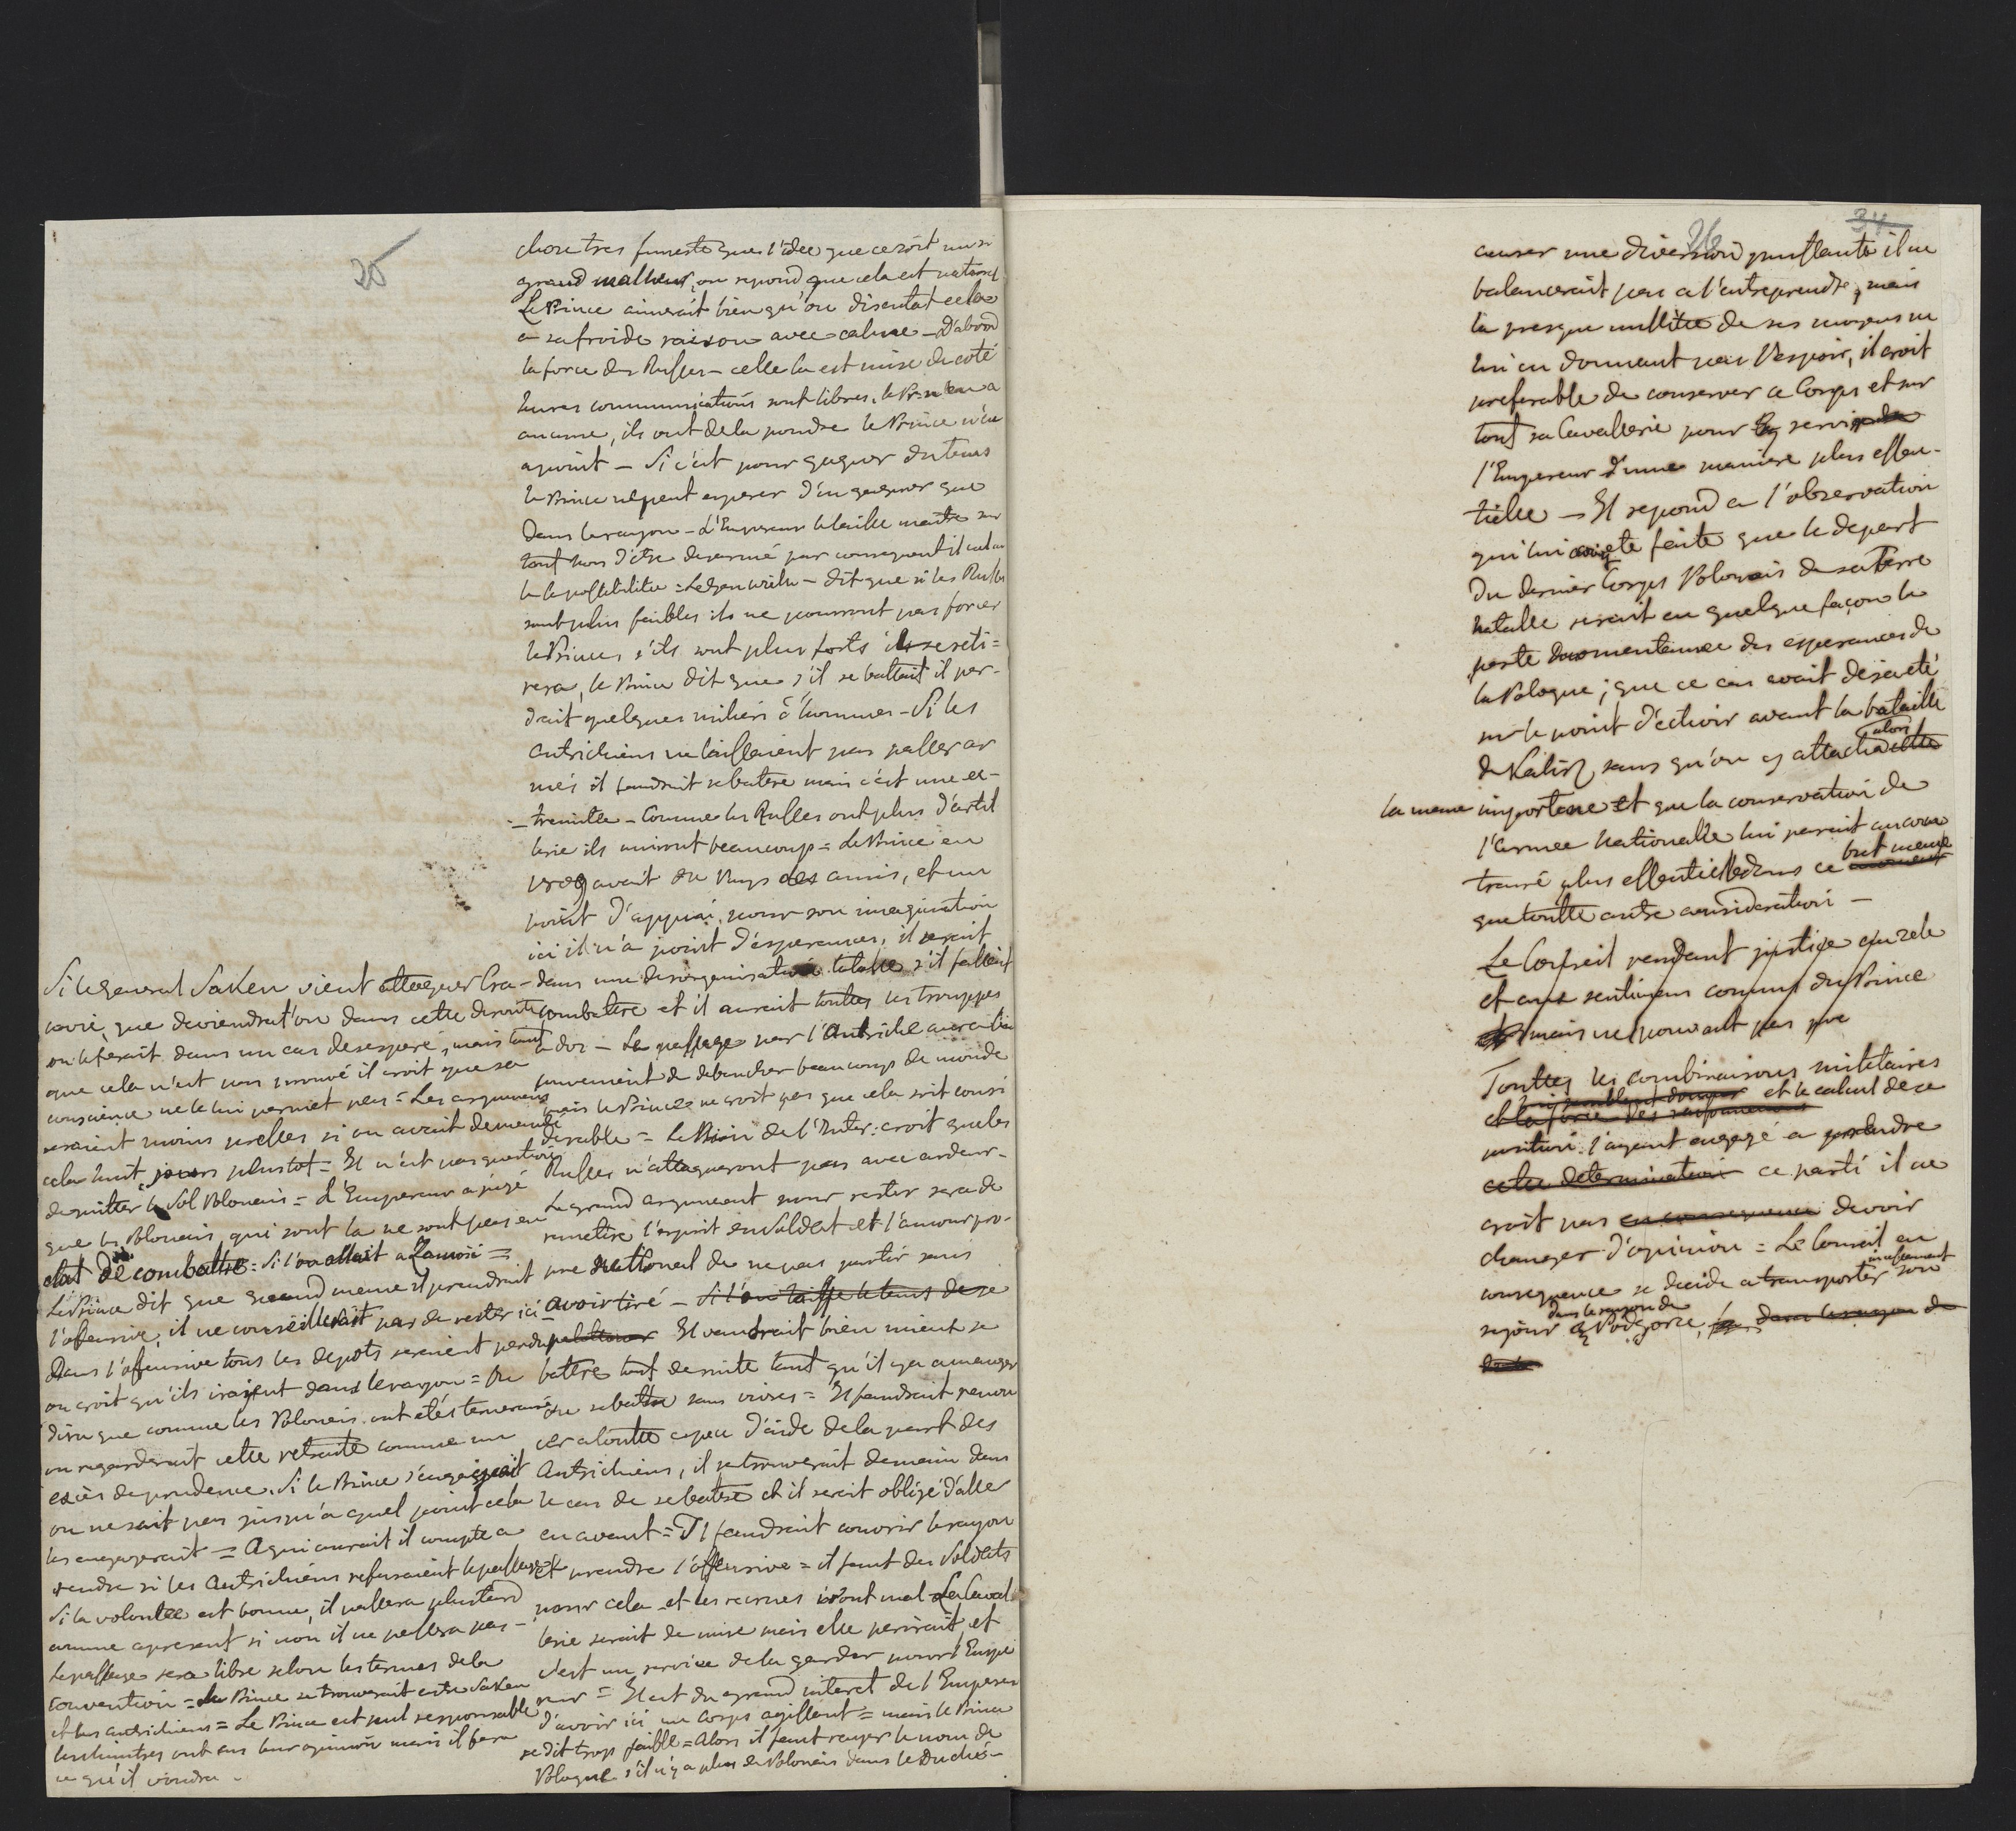 25
chose tres funeste que l'idee que ce soit un si
grand malheur, on repond que cela est naturel
Le Prince aimerait bien qu'on discutat cela
a sa froide raison avec calme – D'abord
la force des Russes – celle la est mise de coté
leurs communications sont libres, le Pr: n'en a
aucune, ils ont de la poudre le Prince n'en
a point – Si c'est pour gagner du tems
le Prince ne peut esperer d'en gagner que
dans le rayon – L'Empereur le laisse maitre sur
tout hors d'etre desarmé par consequent il
la possibilité = Le Gen – dit que si les Russes
sont plus faibles ils ne pourront pas forcer
le Prince, s'ils sont plus forts il se reti=
rera, le Prince dit que s'il se battait il per-
drait quelques miliers d'hommes – Si les
Autrichiens ne laissaient pas passer ar
més il faudrait se battre mais c'est une ex-
– tremitée – Comme les Russes ont plus d'artil
lerie ils nuiront beaucoup = Le Prince en
1809 avait du Pays des amis, et un
point d'appui, pour son imagination
ici il n'a point d'esperances, il serait
dans une desorganisation totalle s'il fallait
combattre et il aurait touttes les trouppes
a dos – Le passage par l'Autriche
de debaucher beaucoup de monde
mais le Prince ne croit pas que cela soit consi
derable = Le Min: de l'Inter: croit que les
Russes n'attaqueront pas avec ardeur –
Le grand argument pour rester sera de
remettre l'esprit du Soldat et l'amour pro-
pre national de ne pas partir sans
avoir tiré – Si l'on laisse le tems de se
Il vaudrait bien mieux se
battre tout de suite tant qu'il y a a manger
que se battre sans vivres = Il faudrait renon
cer a toutte espece d'aide de la part des
Autrichiens, il se trouverait demain dans
le cas de se battre et il serait obligé d'aller
en avant = Il faudrait couvrir le rayon
et prendre l'offensive = il faut des Soldats
pour cela et les recrues iront mal – La Caval
lerie serait de mise mais elle perirait, et
c'est un service de la garder pour l'Empe
reur = Il est du grand interet de l'Empereur
d'avoir ici un Corps agissant = mais le Prince
se dit trop faible = Alors il faut rayer le nom de
Pologne s'il n'y a plus de Polonais dans le Duché –
Si le general Saken vient attaquer Cra-
covie, que deviendrat'on dans cette deroute
on le ferait dans un cas desesperé, mais tant
que cela n'est pas prouvé il croit que sa
conscience ne le lui permet pas = Les argumens
seraient moins si on avait demandé
cela huit jours plustot = Il n'est pas question
de quitter le Sol Polonais = L'Empereur a jugé
que les Polonais qui sont la ne sont pas en
etat de combattre = Si l'on allait a Zamosc =
Le Prince dit que quand meme il prendrait
l'offensive, il ne conseillerait pas de rester ici
Dans l'offensive tous les depots seraient perdus
on croit qu'ils iraient dans le rayon = On
dira que comme les Polonais ont étés temeraires
on regarderait cette retraite comme un
exces de prudence. Si le Prince s'engageait
on ne sait pas jusqu'a quel point cela
les engagerait = A qui aurait il compte a
rendre si les Autrichiens refusaient le passage
Si la volontée est bonne, il passera plustard
comme apresent si non il ne passera pas –
Le passage sera libre selon les termes de la
convention = Le Prince se trouverait entre Saken
et les autrichiens = Le Prince est seul responsable
les Ministres ont eus leur opinion mais il fera
ce qu'il voudra –
26
34
causer une diversion puissante il ne
balancerait pas a l'entreprendre, mais
la presque nullitée de ses moyens ne
lui en donnant pas l'espoir, il croit
preferable de conserver ce Corps et sur
tout sa Cavallerie pour servir
l'Empereur d'une maniere plus essen-
tielle – Il repond a l'observation
qui lui été faite que le depart
du dernier Corps Polonais de sa Terre
natalle serait en quelque façon la
perte momentannee des esperances de
la Pologne; que ce cas avait déja eté
sur le point d'echoir avant la bataille
alors
de Kalisz, sans qu'on y attacha cette
la meme importance et que la conservation de
l'armée Nationalle lui parait au con
but meme
traire plus essentielle dans ce moment
que toutte autre consideration –
Le Conseil rendant justice au zele
et aux sentimens connus du Prince
et mais ne pouvant pas
Touttes les combinaisons militaires
et le calcul de ce
et la force des raisonnemens
position l'ayant engagé a prendre
cette determination ce parti il ne
croit pas en consequence devoir
changer d'opinion = Le Conseil en
incessament
consequence se decide a transporter son
dans le rayon de
sejour a Podgorze, dans le rayon de